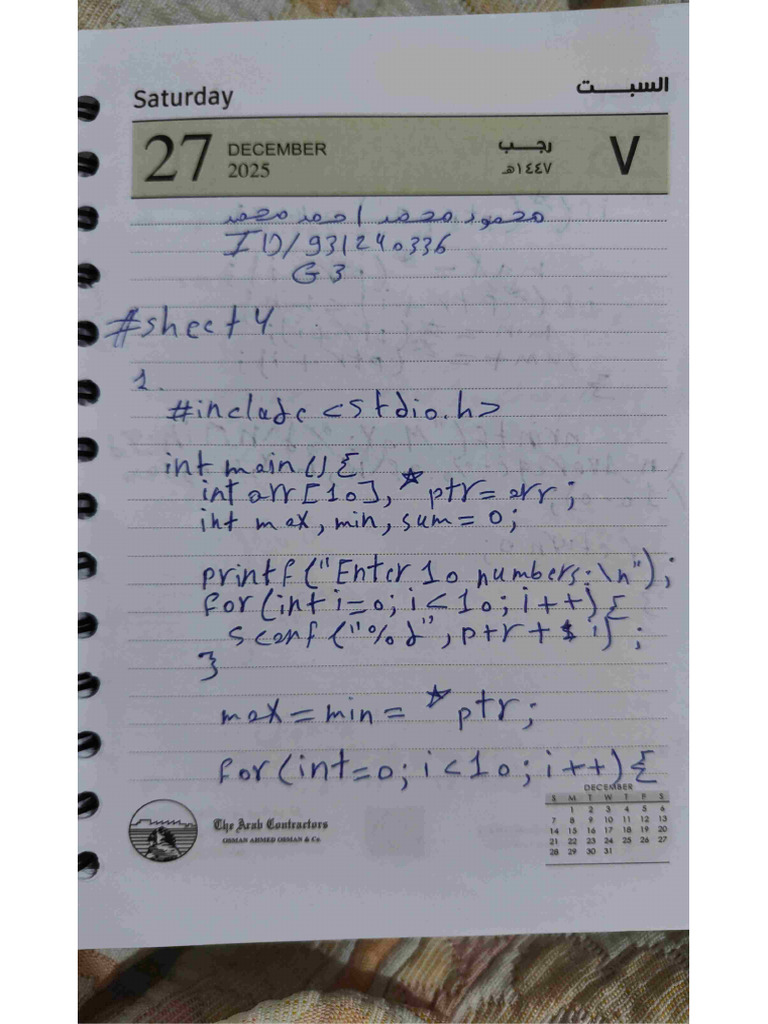 Saturday السبت
27 DECEMBER 2025 رجب ١٤٤٧هـ ٧
محمود محمد احمد محمد
ID/931240336
G3
#sheet4
1.
#include <stdio.h>
int main(){
int arr[10], *ptr=arr;
int max, min, sum=0;
printf("Enter 10 numbers:\n");
for(int i=0; i<10; i++){
scanf("%d", ptr+i);
}
max=min=*ptr;
for(int=0; i<10; i++){
The Arab Contractors
OSMAN AHMED OSMAN & Co.
DECEMBER
S M T W T F S
1 2 3 4 5 6
7 8 9 10 11 12 13
14 15 16 17 18 19 20
21 22 23 24 25 26 27
28 29 30 31